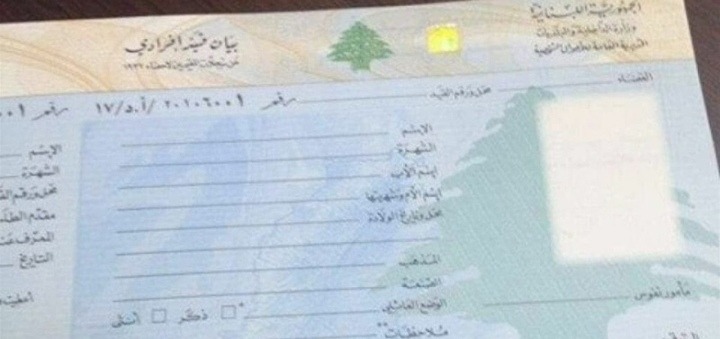 الجمهورية اللبنانية
وزارة الداخلية والبلديات
المديرية العامة للأحوال الشخصية
بيان قيد إفرادي
عن سجلات المقيمين لإحصاء ١٩٣٢
القضاء
محل ورقم القيد
رقم ٢٠١٠٦٠٠١/أ.د/١٧
رقم
الإسم
الشهرة
إسم الأب
إسم الأم وشهرتها
محل وتاريخ الولادة
المذهب
الصنعة
الوضع العائلي
* ذكر أنثى
ملاحظات**
مأمور نفوس
الإسم
الشهرة
محل ورقم
مقدم
المعرّف
التاريخ